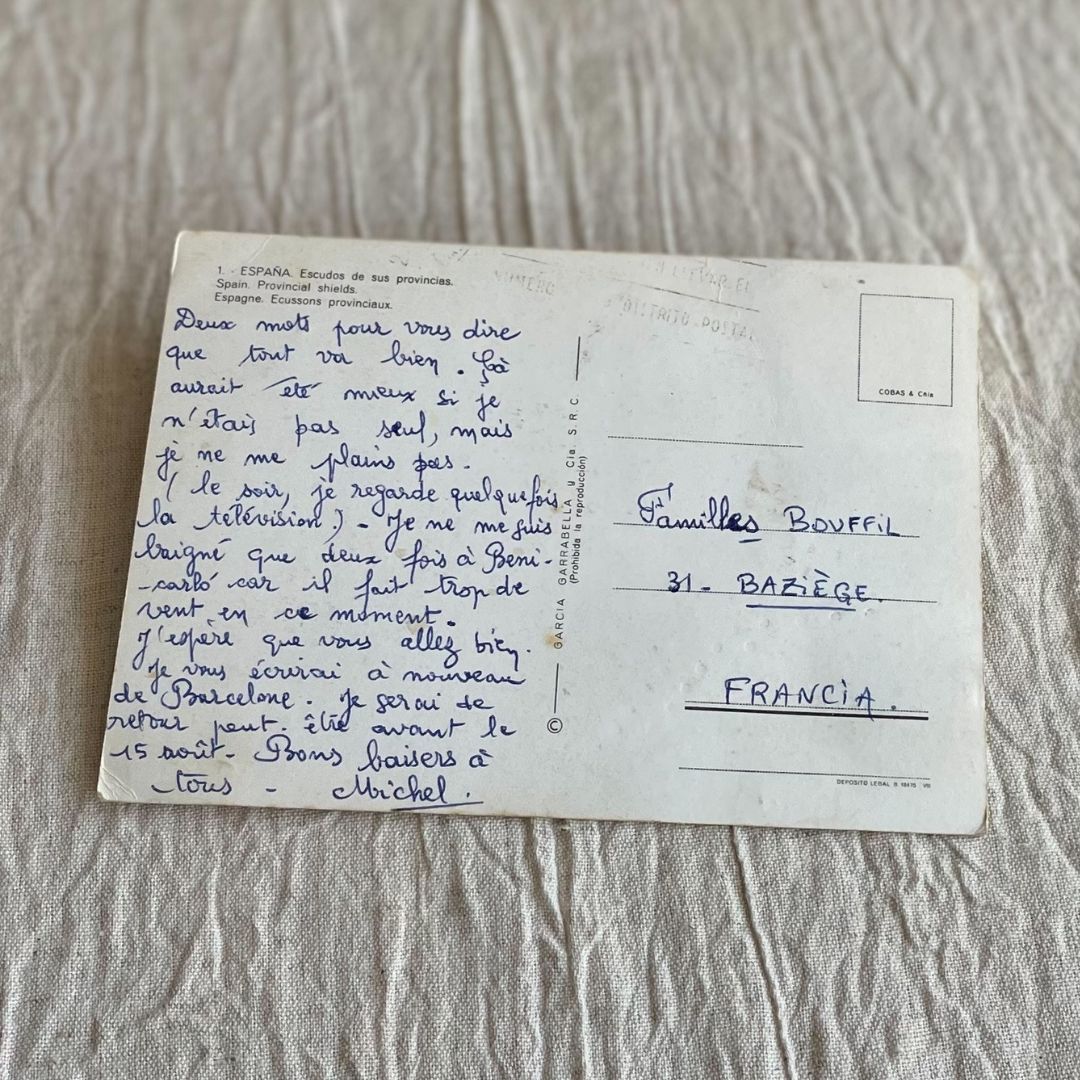 1. - ESPAÑA. Escudos de sus provincias.
Spain. Provincial shields.
Espagne. Ecussons provinciaux.
Deux mots pour vous dire
que tout va bien. Çà
aurait été mieux si je
n'étais pas seul, mais
je ne me plains pas.
(le soir, je regarde quelquefois
la télévision) - Je ne me suis
baigné que deux fois à Beni-
-carló car il fait trop de
vent en ce moment.
J'espère que vous allez bien.
Je vous écrirai à nouveau
de Barcelone. Je serai de
retour peut-être avant le
15 août - Bons baisers à
tous - Michel.
© GARCIA GARRABELLA y Cia. S.R.C.
(Prohibida la reproducción)
NUMERO
DISTRITO POSTAL
COBAS & Cnia
Familles BOUFFIL
31 - BAZIÈGE.
FRANCIA.
DEPOSITO LEGAL B.